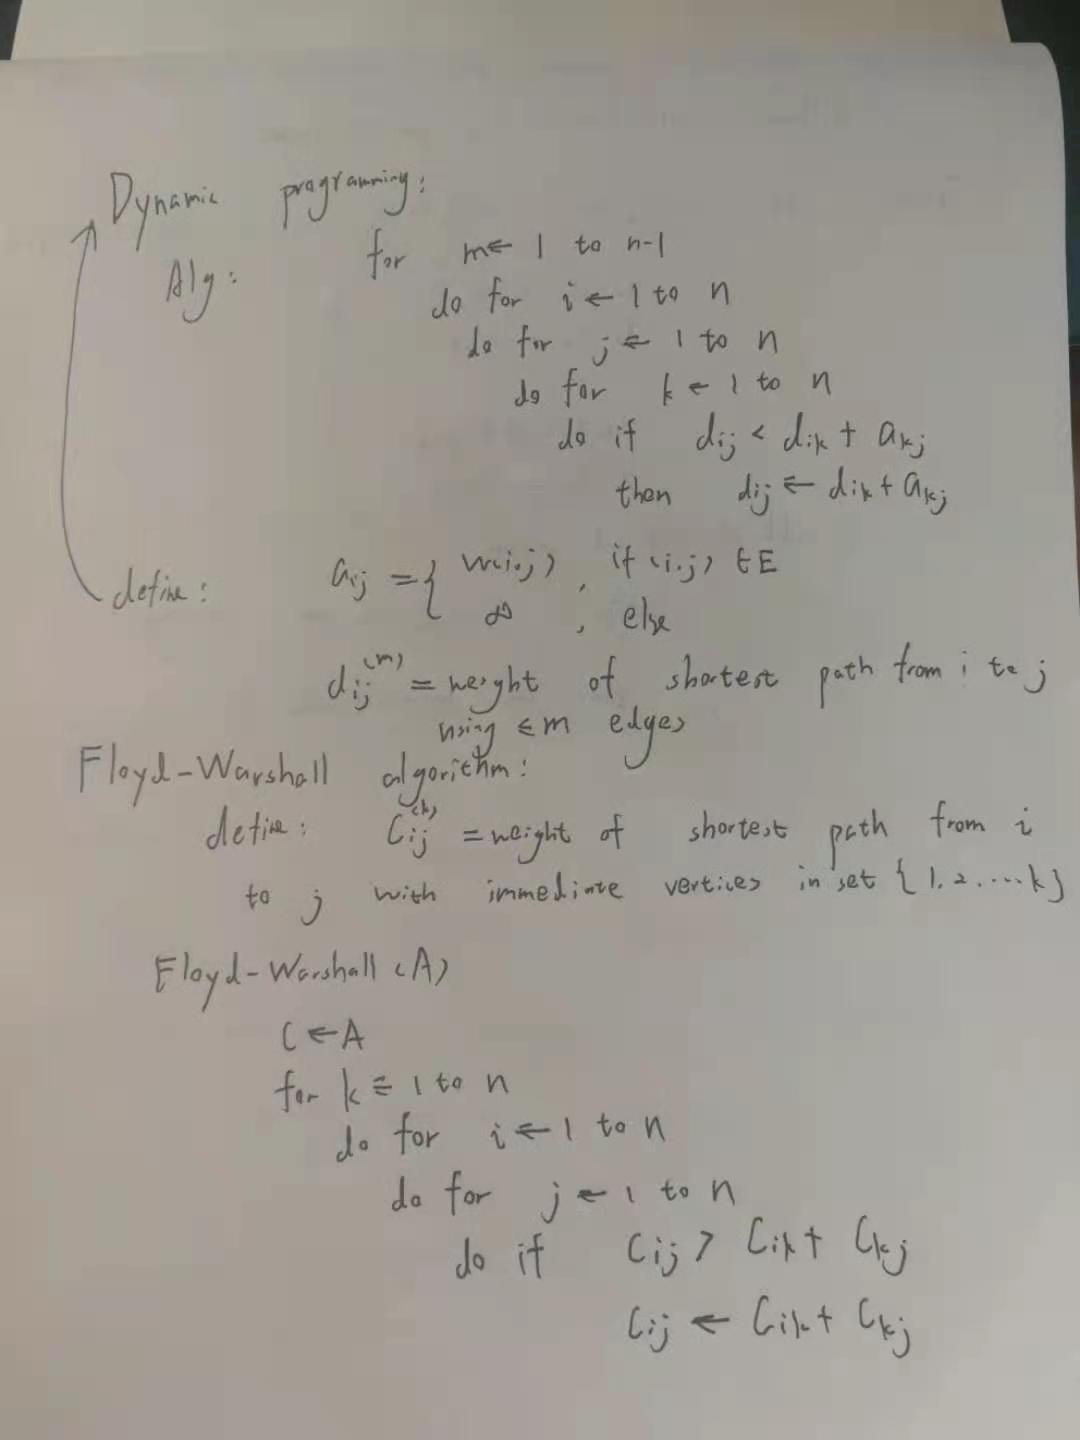 Dynamic programming:
Alg: for m ← 1 to n-1
do for i ← 1 to n
do for j ← 1 to n
do for k ← 1 to n
do if dij < dik + akj
then dij ← dik + akj
define: aij = { w(i,j), if (i,j) ∈ E
∞, else
dij^(m) = weight of shortest path from i to j
using ≤ m edges
Floyd-Warshall algorithm:
define: Cij^(k) = weight of shortest path from i
to j with immediate vertices in set {1,2,....k}
Floyd-Warshall (A)
C ← A
for k ← 1 to n
do for i ← 1 to n
do for j ← 1 to n
do if Cij > Cik + Ckj
Cij ← Cik + Ckj